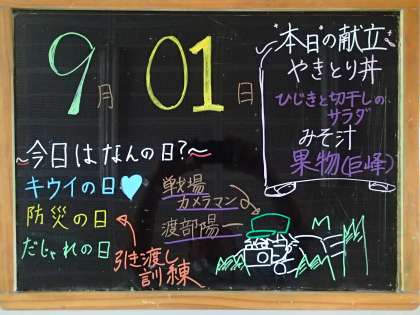 9月01日
"本日の献立"
やきとり丼
ひじきと切干しの
サラダ
みそ汁
果物(巨峰)
~今日はなんの日?~
キウイの日♥
防災の日
だじゃれの日
引き渡し
訓練
戦場
カメラマン
渡部陽一